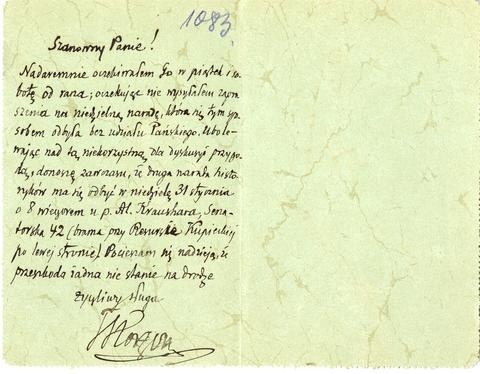 1083
Szanowny Panie!
Nadaremnie oczekiwałem Go w piątek i so-
botę od rana; oczekując nie wysyłałem zapro-
szenia na niedzielną naradę, która się tym spo-
sobem odbyła bez udziału Pańskiego. Ubole-
wając nad tą niekorzystną dla dyskusyi przygo-
dą, donoszę zawczasu, iż druga narada histo-
ryków ma się odbyć w niedzielę 31 stycznia
o 8 wieczorem u p. Al. Kraushara, Sena-
torska 42 (brama przy Resursie Kupieckiej
po lewej stronie). Pocieszam się nadzieją, iż
przeszkoda żadna nie stanie na drodze
życzliwy sługa
TKorzon